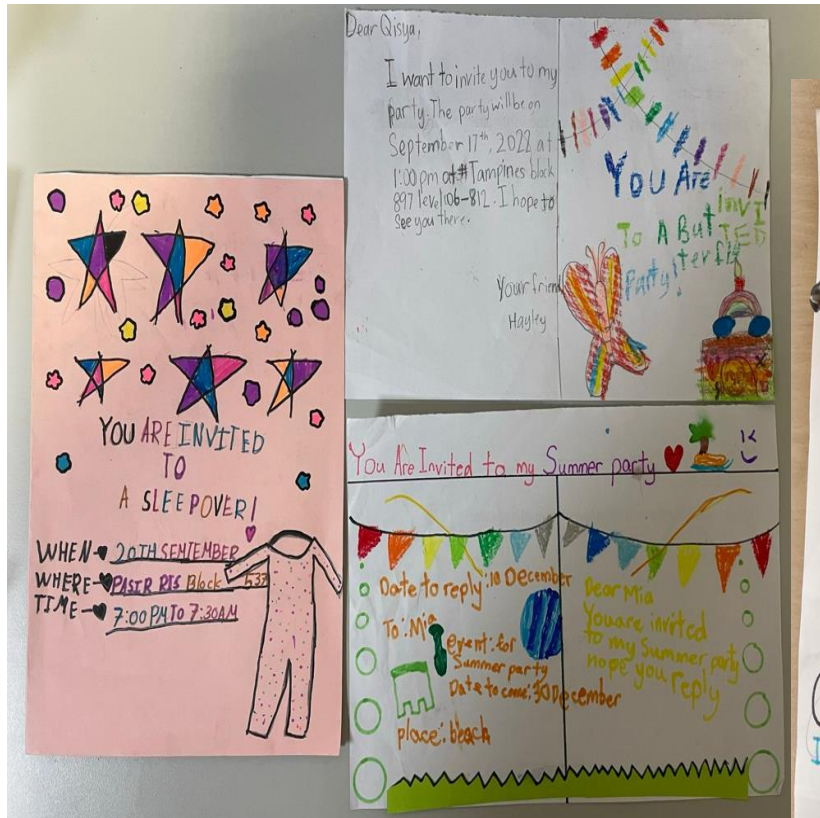 YOU ARE INVITED
TO
A SLEEPOVER!
WHEN 20TH SEMTEMBER
WHERE PASIR RIS Block 537
TIME 7:00 PM TO 7:30AM
Dear Qisya,
I want to invite you to my
party. The party will be on
September 17th, 2022 at
1:00 pm at # Tampines block
897 level 06-812. I hope to
see you there.
Your friend
Hayley
YOU Are
inVI
TED
To A But
terfly
Party!
You Are Invited to my Summer party
Date to reply: 10 December
To: Mia
event: for
Summer party
Date to come: 30 December
place: beach
Dear Mia
You are invited
to my Summer party
hope you reply